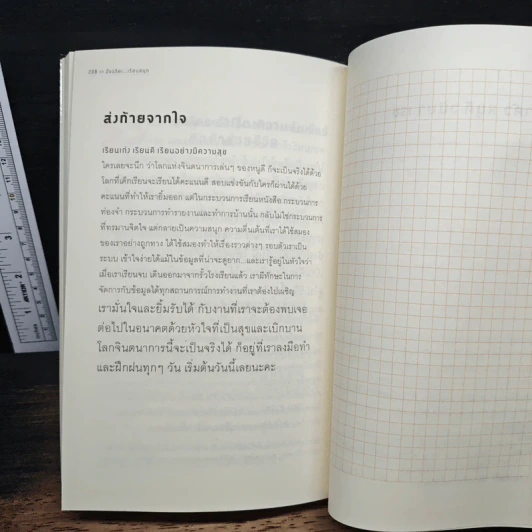 ส่งท้ายจากใจ
เรียนเก่ง เรียนดี เรียนอย่างมีความสุข
ใครเลยจะนึก ว่าโลกแห่งจินตนาการเล่นๆ ของหนูดี ก็จะเป็นจริงได้ด้วย
โลกที่เด็กเรียนจะเรียนได้คะแนนดี สอบแข่งขันกับใครก็ผ่านได้ด้วย
คะแนนที่ทำให้เรายิ้มออก แต่ในกระบวนการเรียนหนังสือ กระบวนการ
ท่องจำ กระบวนการทำรายงานและทำการบ้านนั้น กลับไม่ใช่กระบวนการ
ที่ทรมานจิตใจ แต่กลายเป็นความสนุก ความตื่นเต้นที่เราได้ใช้สมอง
ของเราอย่างถูกทาง ได้ใช้สมองทำให้เรื่องราวต่างๆ รอบตัวเราเป็น
ระบบ เข้าใจง่ายได้แม้ในข้อมูลที่น่าจะดูยาก...และเรารู้อยู่ในหัวใจว่า
เมื่อเราเรียนจบ เดินออกมาจากรั้วโรงเรียนแล้ว เรามีทักษะในการ
จัดการกับข้อมูลได้ทุกสถานการณ์การทำงานที่เราต้องไปเผชิญ
เรามั่นใจและยิ้มรับได้ กับงานที่เราจะต้องพบเจอ
ต่อไปในอนาคตด้วยหัวใจที่เป็นสุขและเบิกบาน
โลกจินตนาการนี้จะเป็นจริงได้ ก็อยู่ที่เราลงมือทำ
และฝึกฝนทุกๆ วัน เริ่มต้นวันนี้เลยนะคะ